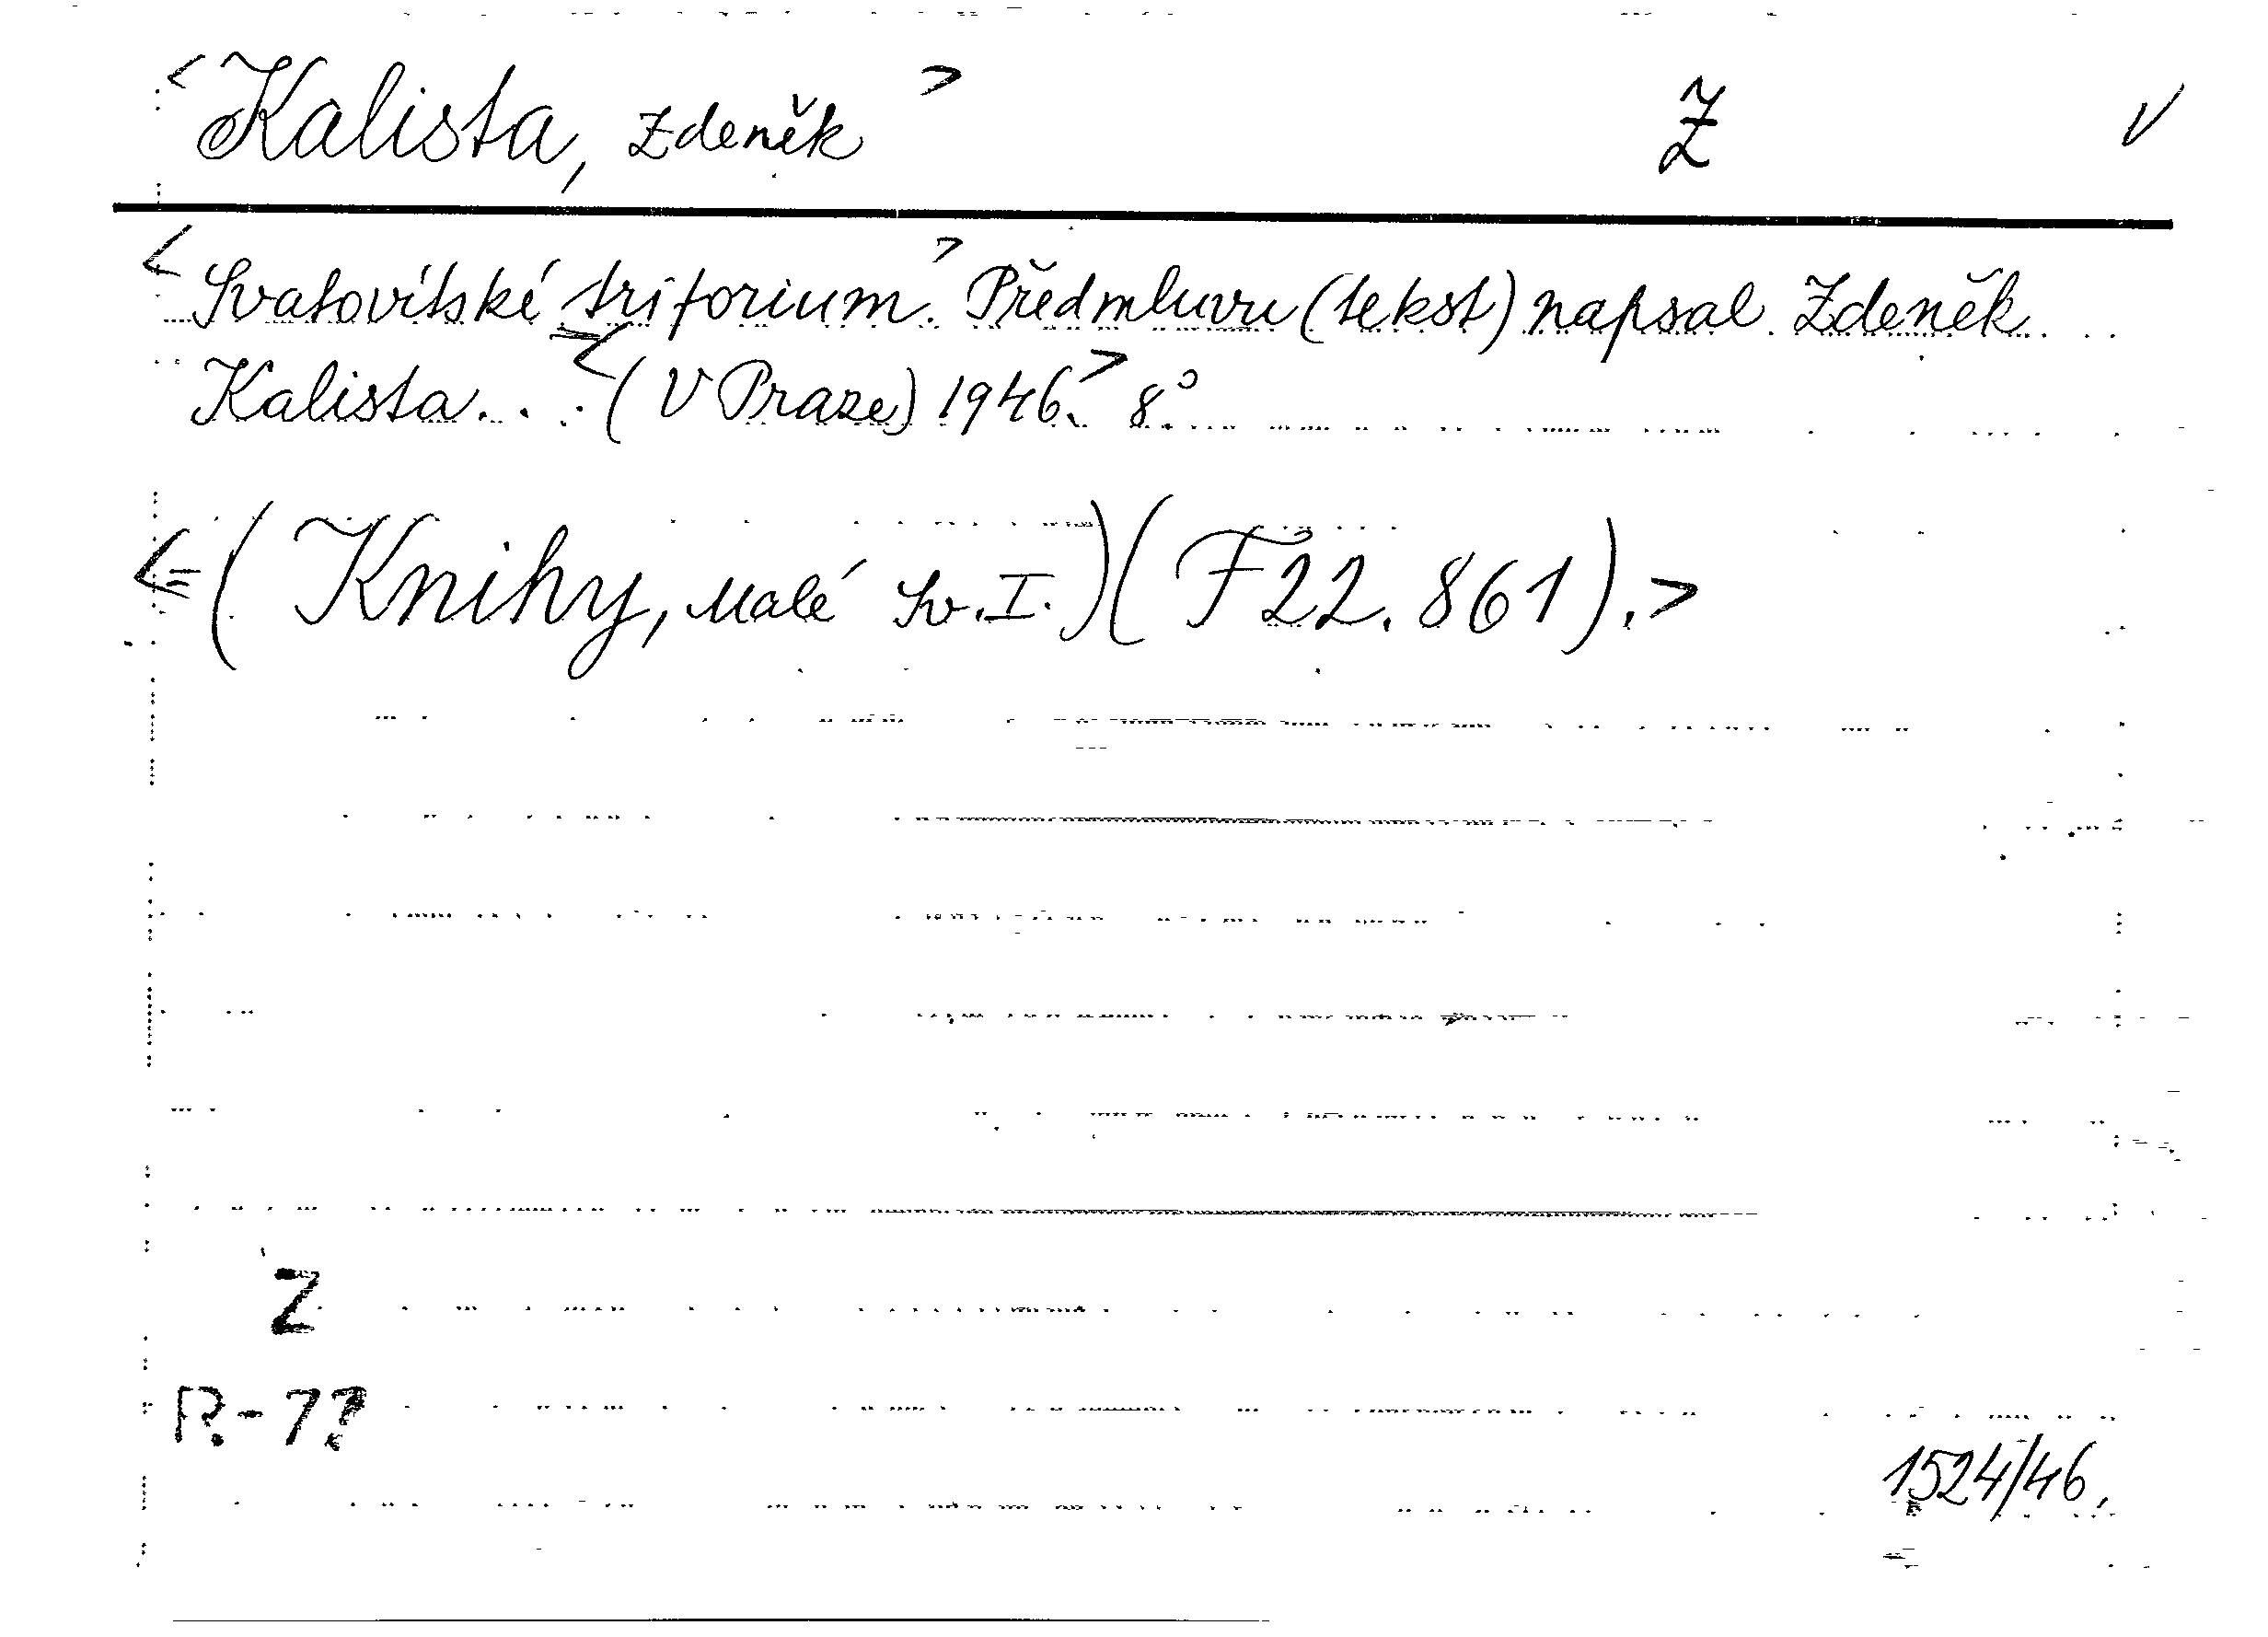 <Kalista, Zdeněk> Z V
<Svatovítské triforium.> Předmluvu (tekst) napsal Zdeněk
Kalista. . . <(V Praze) 1946.> 8°.
<=(Knihy, Malé Sv. I.)(F 22.861).>
Z
R-7?
1524/46.